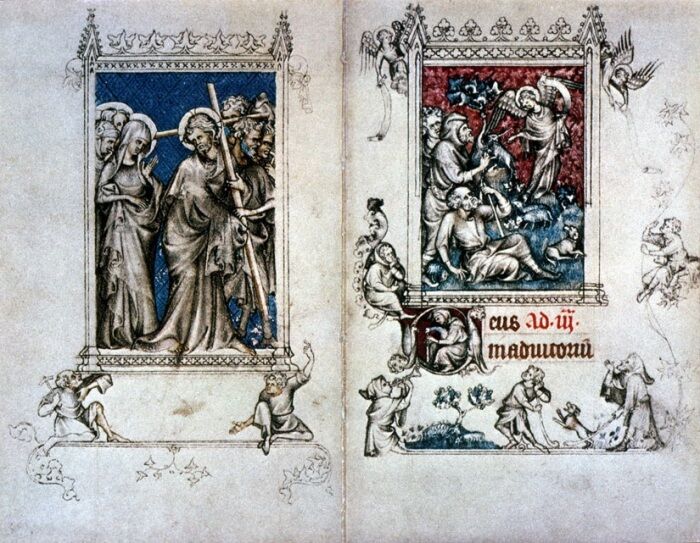 Deus Ad .iij.
inadiutoriū